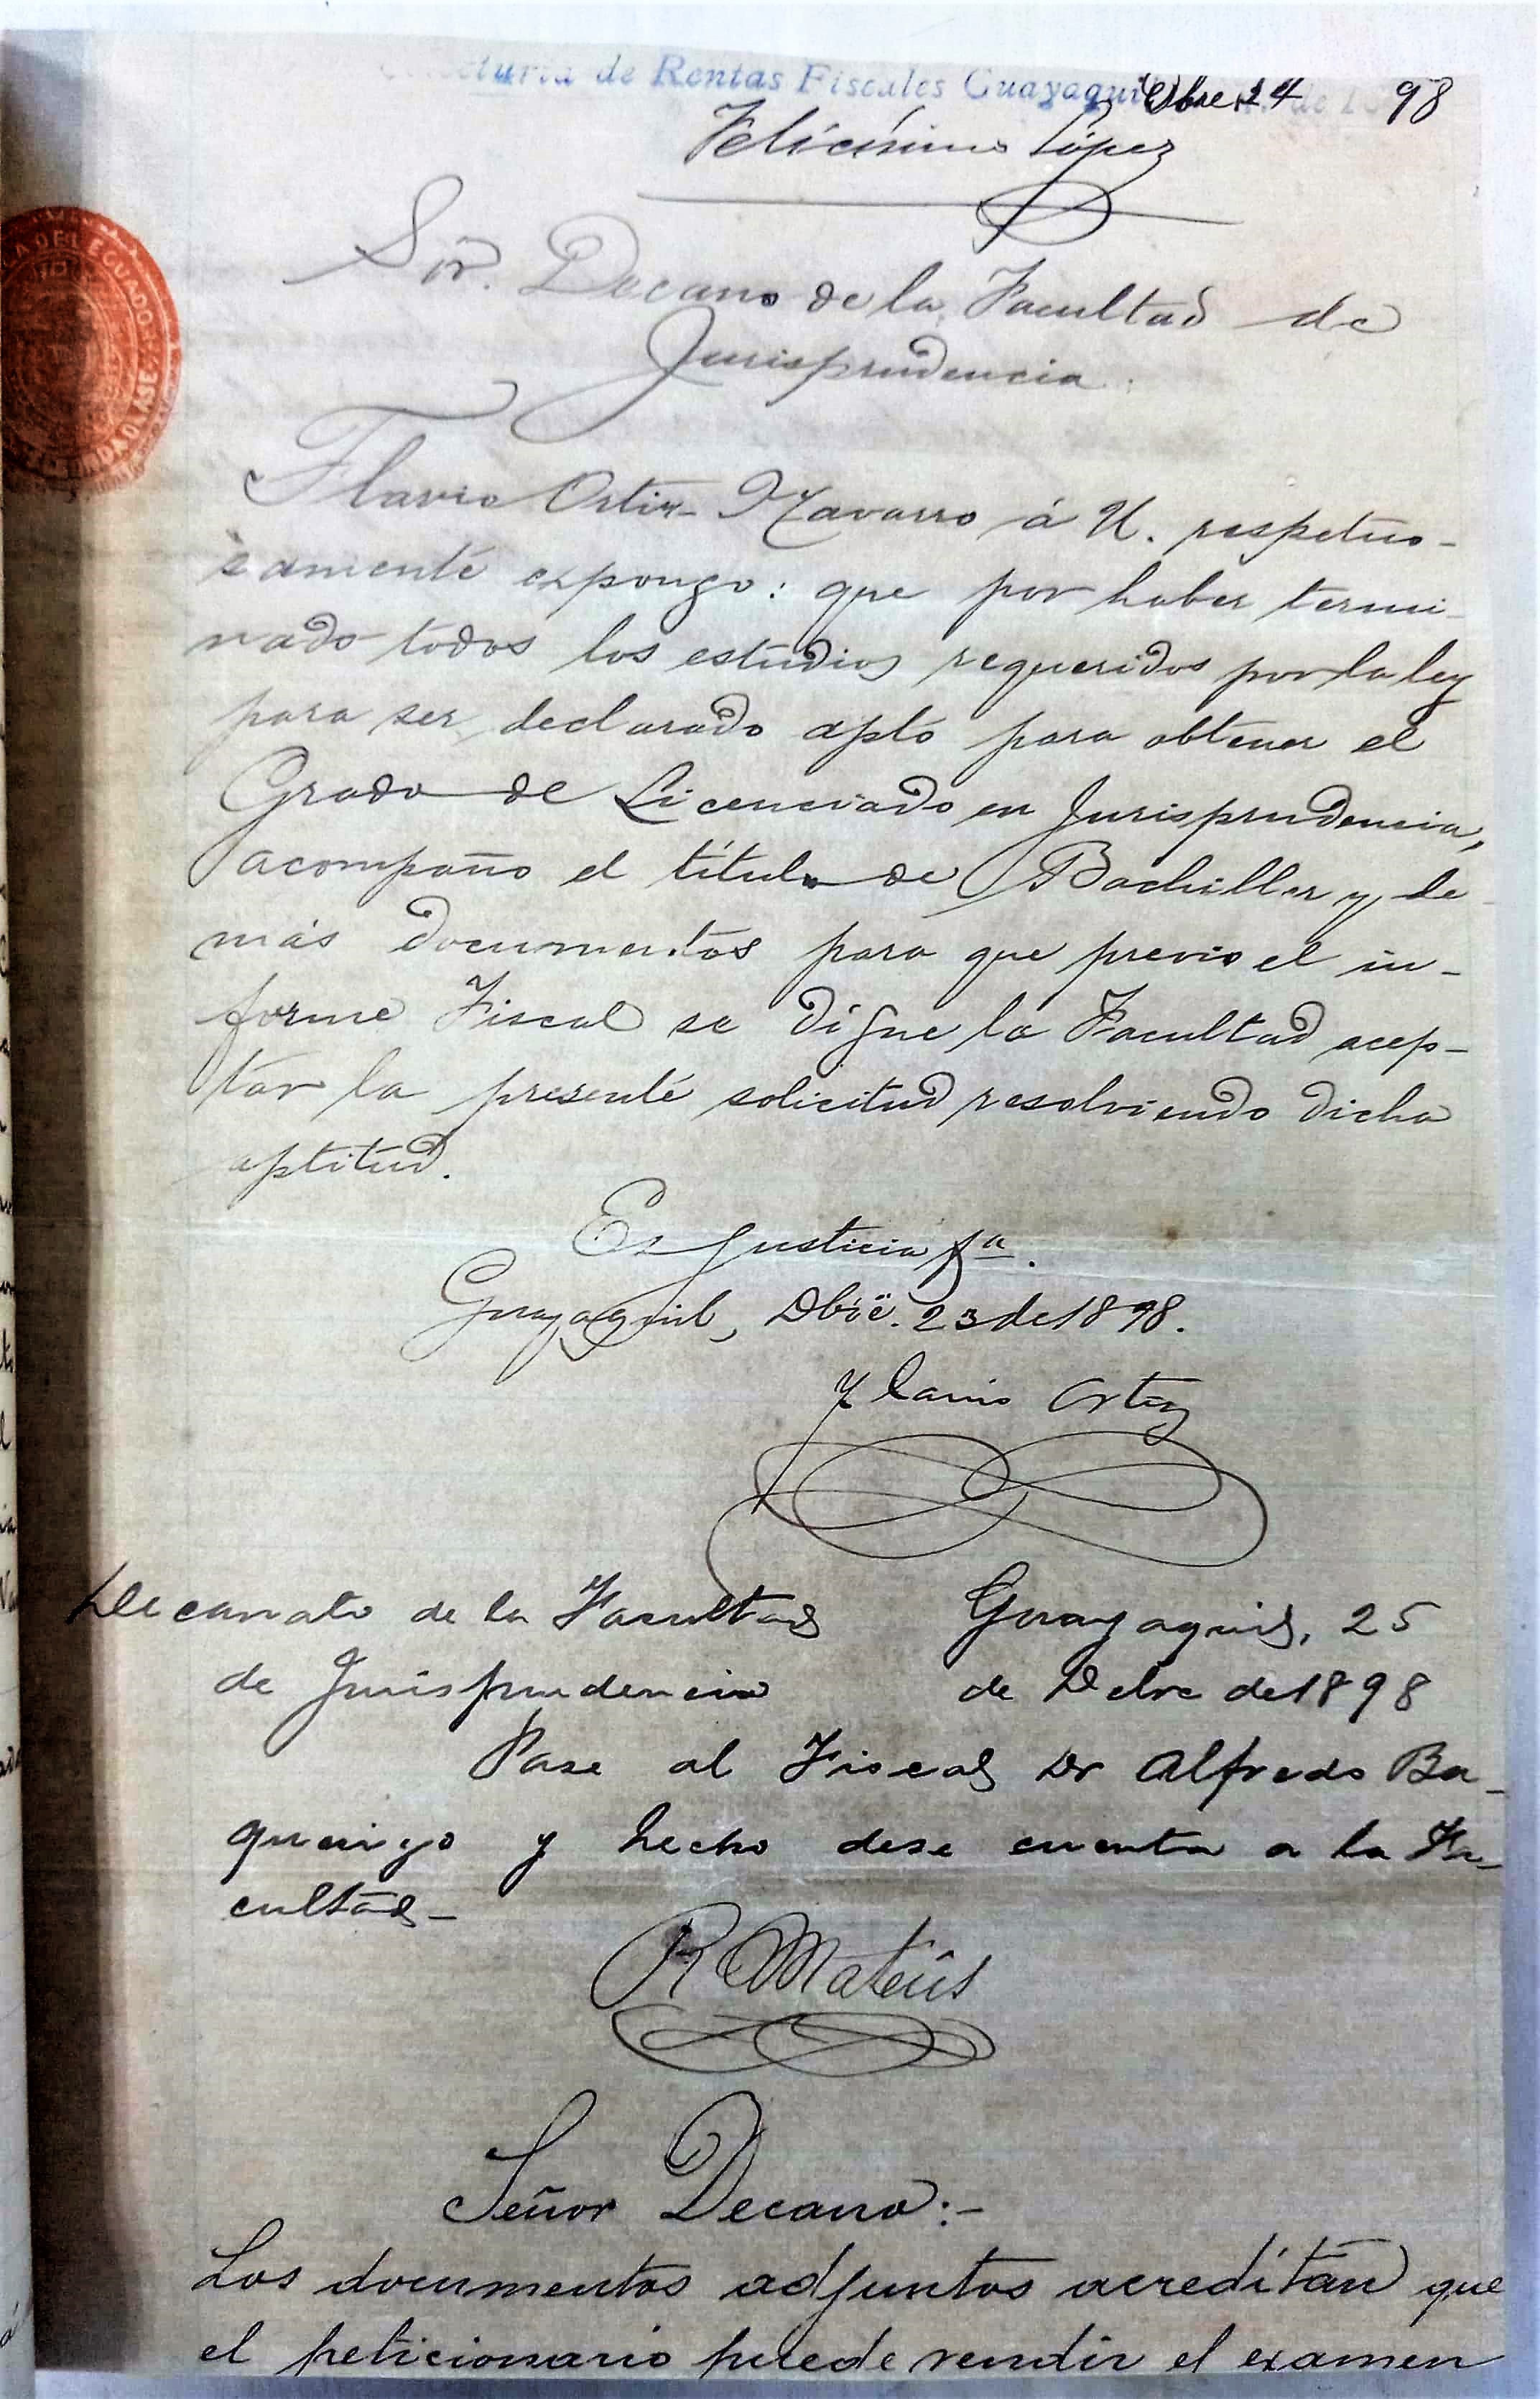 de Rentas Fiscales Guayaquil Dbre 24 de 1 98
Felicísimo López
Sōr. Decano de la Facultad de
Jurisprudencia.
Flavio Ortiz Navarro á U. respetuo-
samente expongo: que por haber termi-
nado todos los estudios requeridos por la ley
para ser declarado apto para obtener el
Grado de Licenciado en Jurisprudencia,
acompaño el título de Bachiller y de-
más documentos para que previo el in-
forme Fiscal se digne la Facultad acep-
tar la presente solicitud resolviendo dicha
aptitud.
Es Justicia
Guayaquil, Dbre. 23 de 1898.
Flavio Ortiz
Decanato de la Facultad Guayaquil, 25
de Jurisprudencia de Dcbre de 1898
Pase al Fiscal Dr Alfredo Ba-
querizo y hecho dese cuenta a la Fa-
cultad-
R Mateús
Señor Decano:-
Los documentos adjuntos acreditan que
el peticionario puede rendir el examen